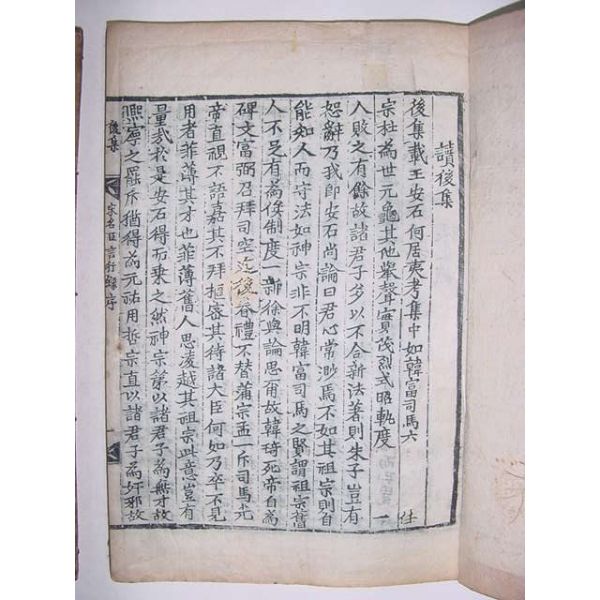 讀後集
後集載王安石何居夷考集中如韓富司馬六
宗社為世元龜其他蜚聲實茂烈式昭軌度
入敗之有餘故諸君子多以不合新法著則朱子豈有
恕辭乃我即安石尚論曰君心常渺焉不如其祖宗則自
能知人而守法如神宗非不明韓富司馬之賢謂祖宗舊
人不足有為俟制度一新徐與論思爾故韓琦死帝自為
碑文富弼召拜司空迄後眷禮不替蒲宗孟一斥司馬光
帝直視不語嘉其不拜樞密其待諸大臣何如乃卒不見
用者菲薄其才也菲薄舊人思凌越其祖宗此意豈有
量哉於是安石得而乘之然神宗第以諸君子為無才故
熙寧之罷斥猶得為元祐用哲宗直以諸君子為奸邪故
後集
宋名臣言行錄序
一